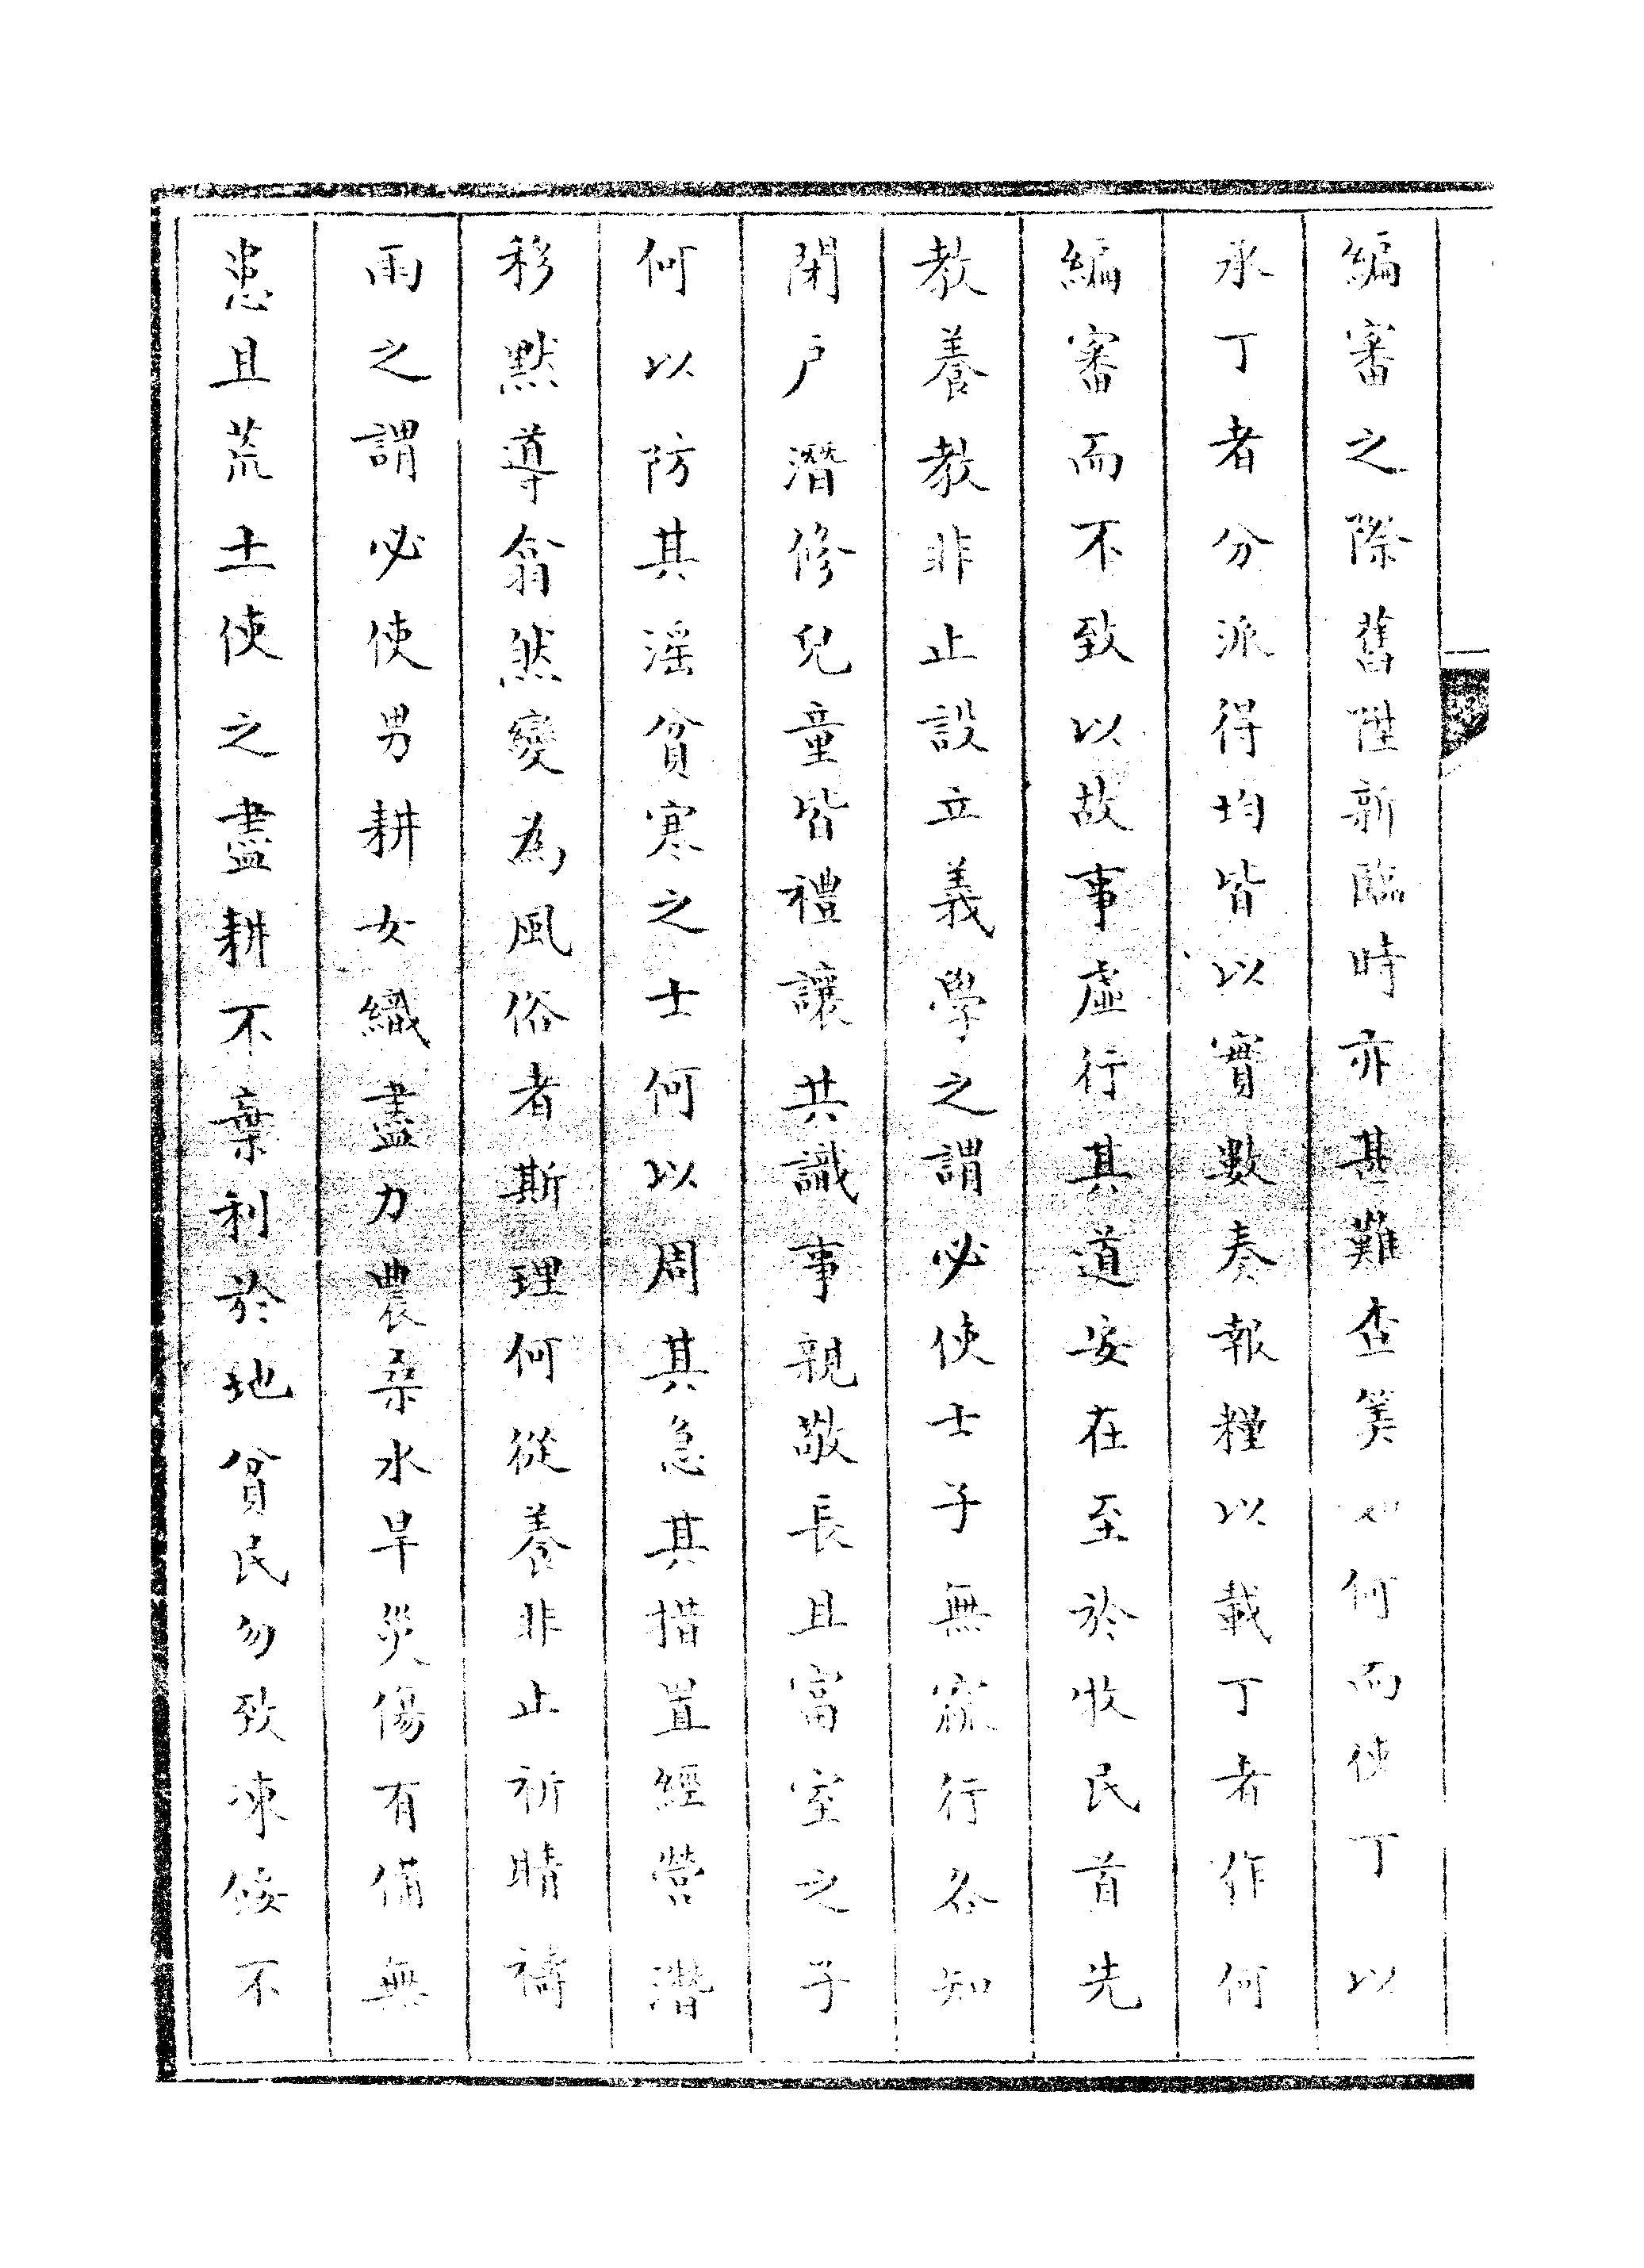 編審之際舊陞新臨時亦甚難查筭如何而使丁以
承丁者分派得均皆以實數奏報糧以載丁者作何
編審而不致以故事虛行其道安在至於牧民首先
教養教非止設立義學之謂必使士子無窳行各知
閉户潛修兒童皆禮讓共識事親敬長且富室之子
何以防其滛貧寒之士何以周其急其措置經營潛
移默導翕然變為風俗者斯理何從養非止祈晴禱
雨之謂必使男耕女織盡力農桑水旱災傷有備無
患且荒土使之盡耕不棄利於地貧民勿致凍餒不